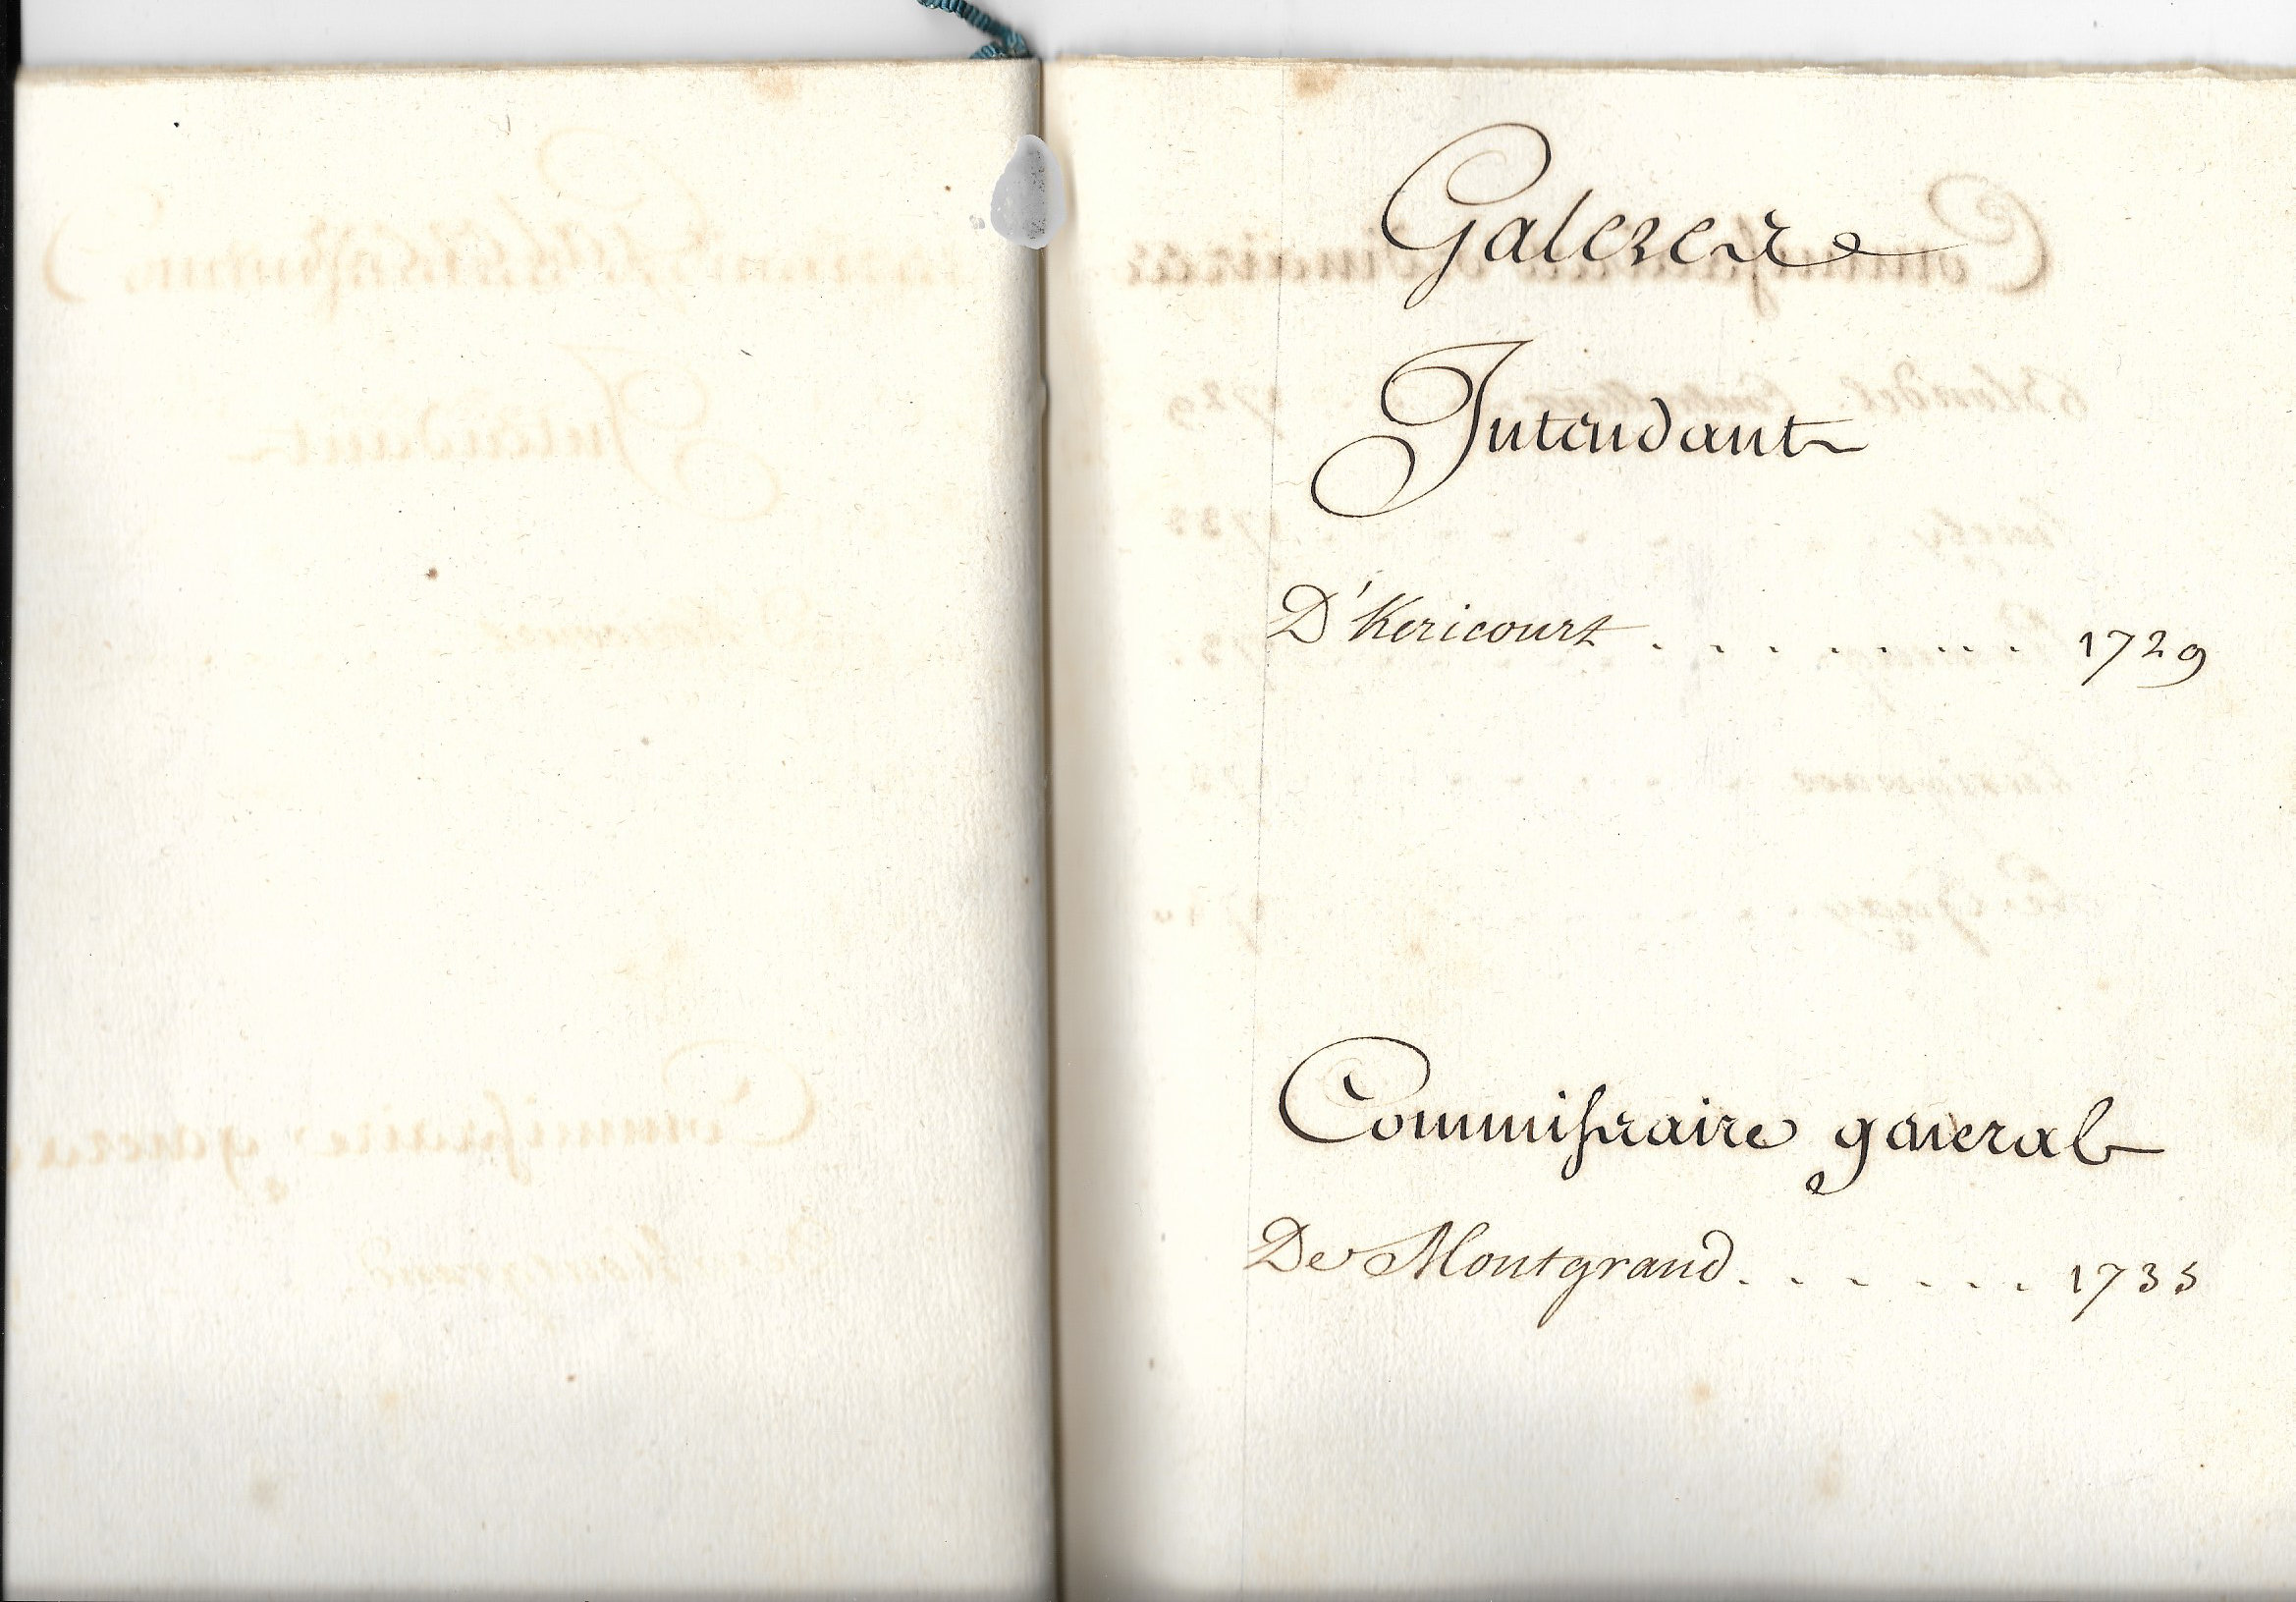 Galeres
Intendant
D'hericourt . . . . . . . 1729
Commissaire general
De Montgrand . . . . . . 1735